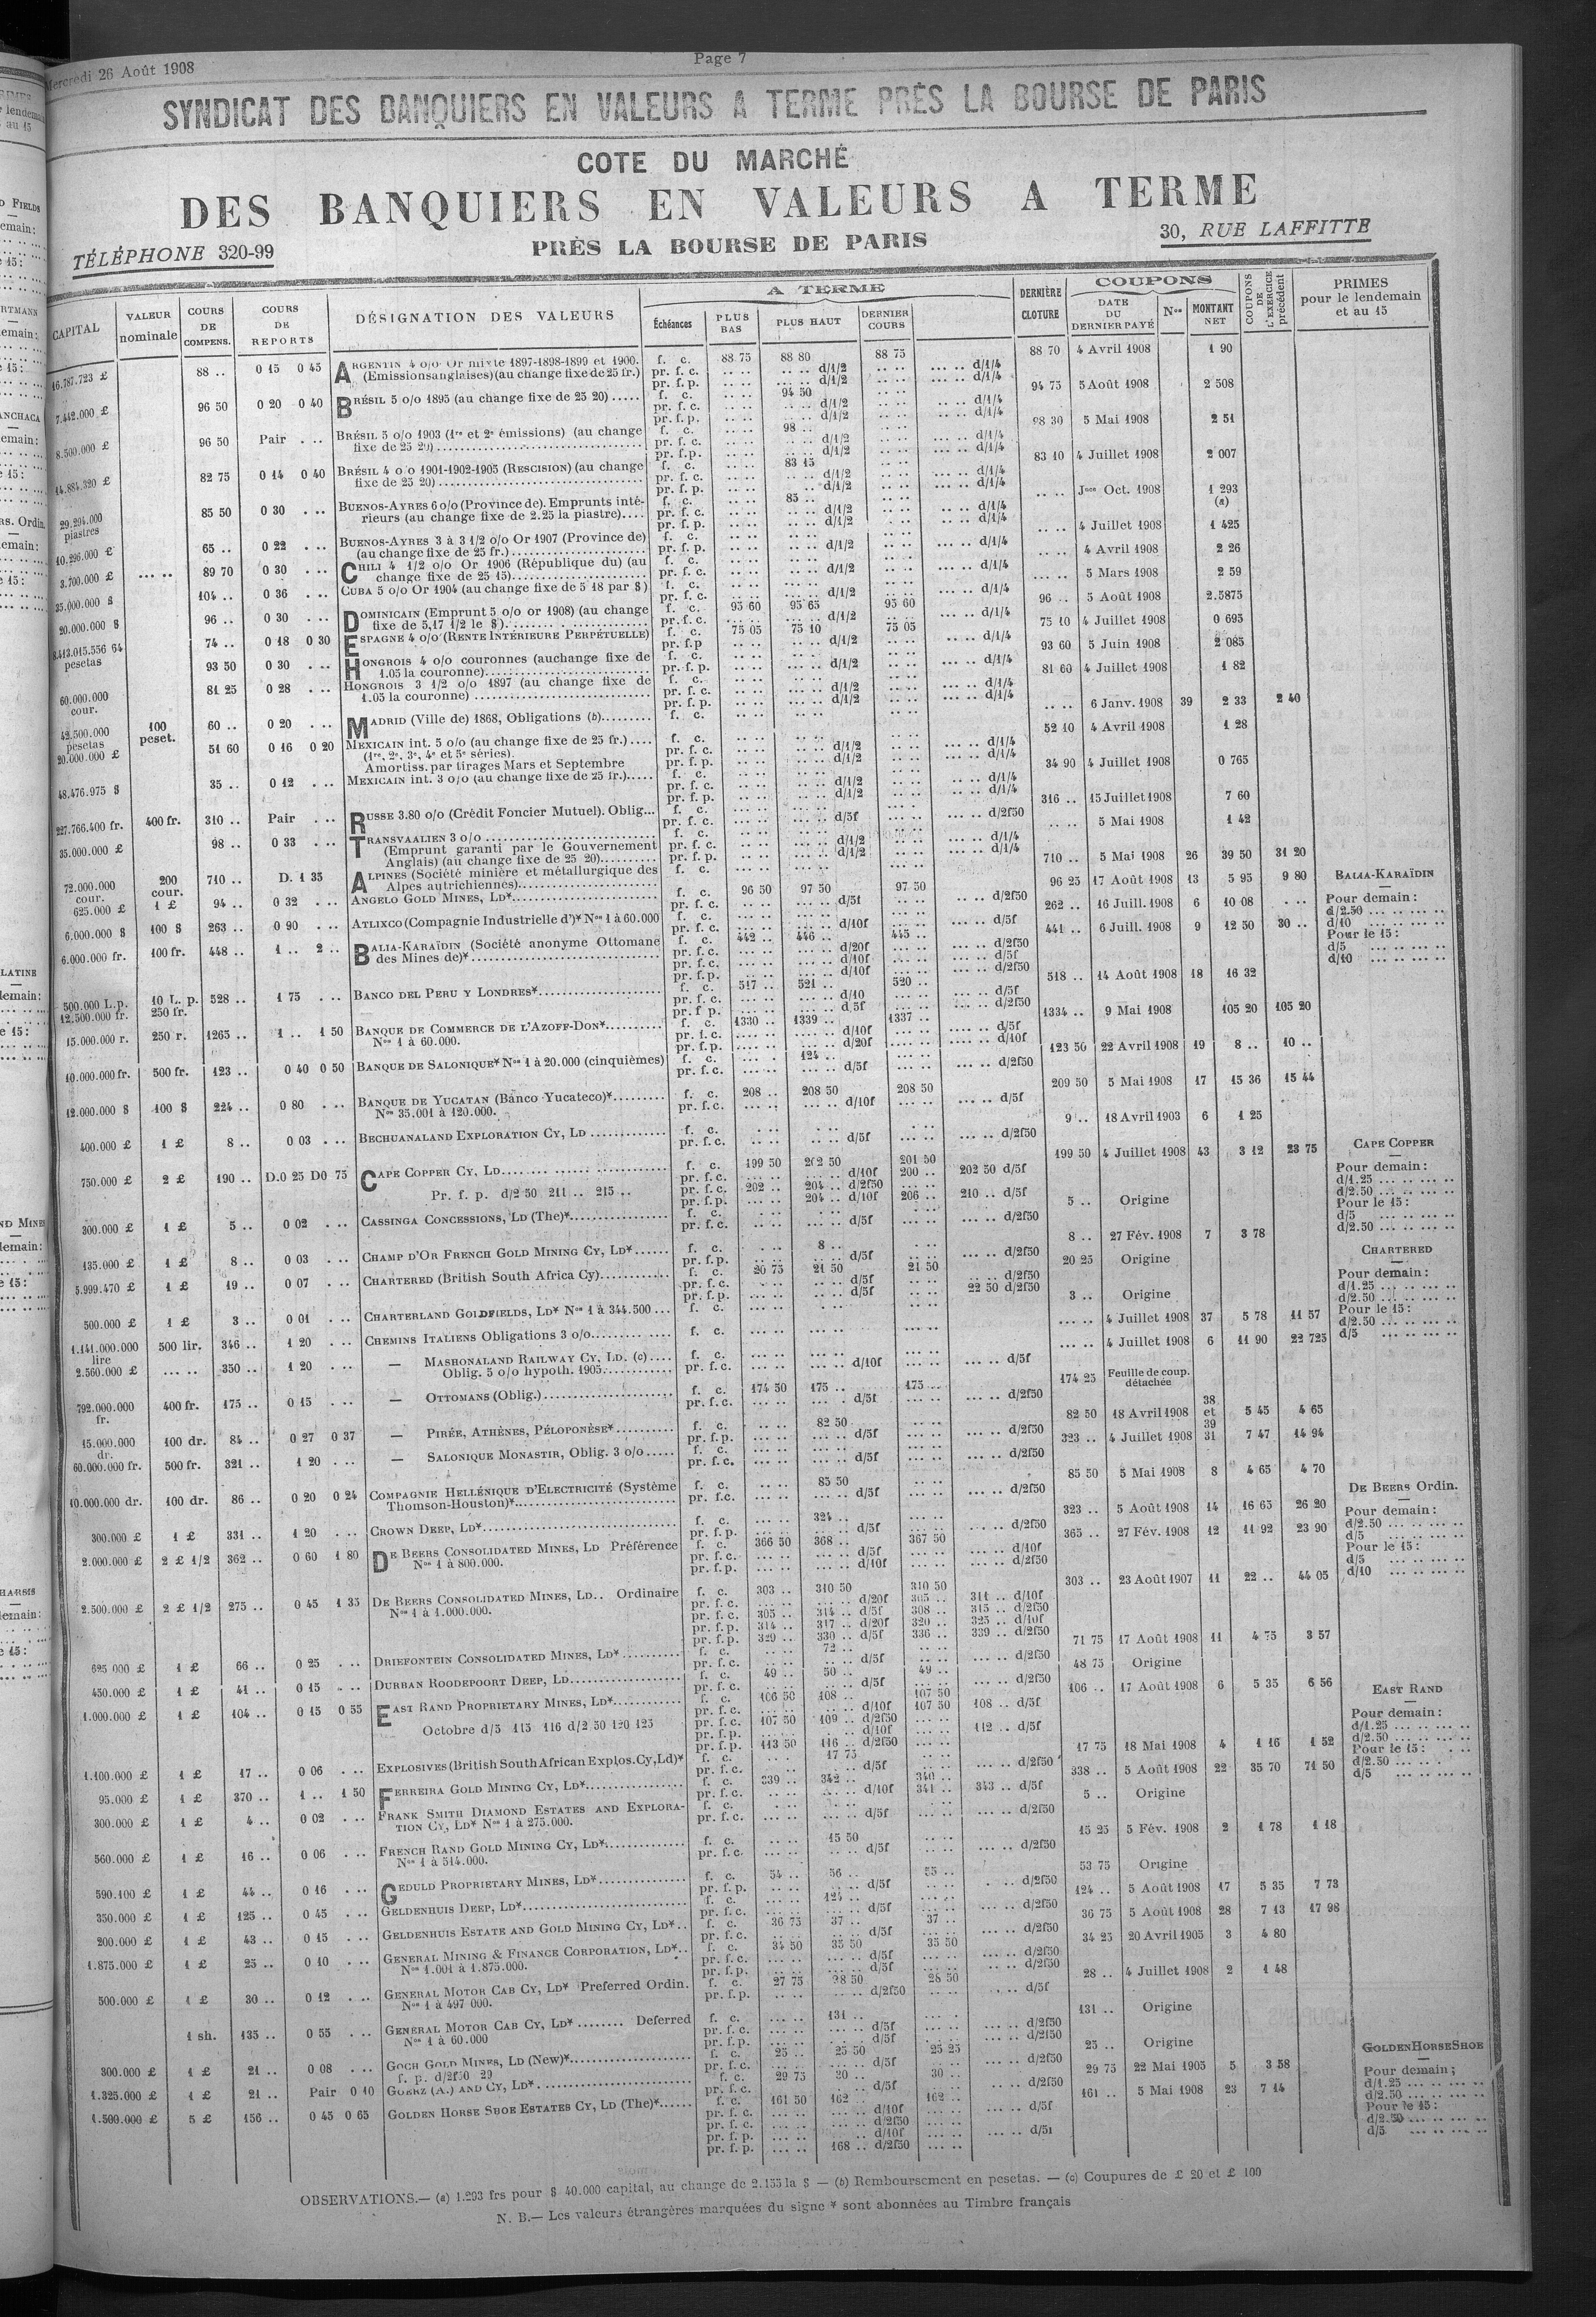 Mercredi 26 Août 1908
Page 7
SYNDICAT DES BANQUIERS EN VALEURS A TERME PRÈS LA BOURSE DE PARIS
COTE DU MARCHÉ
DES BANQUIERS EN VALEURS A TERME
PRÈS LA BOURSE DE PARIS
TÉLÉPHONE 320-99
30, RUE LAFFITTE
CAPITAL
VALEUR nominale
COURS DE COMPENS.
COURS DE REPORTS
DÉSIGNATION DES VALEURS
A TERME
Échéances
PLUS BAS
PLUS HAUT
DERNIER COURS
DERNIÈRE CLOTURE
COUPONS
DATE DU DERNIER PAYÉ
Nos
MONTANT NET
COUPONS DE L'EXERCICE précédent
PRIMES pour le lendemain et au 15
16.787.723 £ 88 .. 0 15 0 45 ARGENTIN 4 o/o Or mixte 1897-1898-1899 et 1900. f. c. 88 75 88 80 88 75 88 70 4 Avril 1908 1 90
(Emissions anglaises) (au change fixe de 25 fr.) pr. f. c. d/1/2 d/1/4
7.442.000 £ 96 50 0 20 0 40 BRÉSIL 5 o/o 1895 (au change fixe de 25 20) f. c. 94 50 94 75 5 Août 1908 2 508
8.500.000 £ 96 50 Pair BRÉSIL 5 o/o 1903 (1re et 2e émissions) (au change f. c. 98 .. 98 30 5 Mai 1908 2 51
fixe de 25 20)
14.884.320 £ 82 75 0 14 0 40 BRÉSIL 4 o/o 1901-1902-1905 (RESCISION) (au change f. c. 83 15 83 10 4 Juillet 1908 2 007
fixe de 25 20)
29.294.000 piastres 85 50 0 30 BUENOS-AYRES 6 o/o (Province de). Emprunts inté- f. c. 85 .. Jnce Oct. 1908 1 293 (a)
rieurs (au change fixe de 2.25 la piastre)
10.296.000 £ 65 .. 0 22 BUENOS-AYRES 3 à 3 1/2 o/o Or 1907 (Province de) f. c. 4 Juillet 1908 1 425
(au change fixe de 25 fr.)
3.700.000 £ 89 70 0 30 CHILI 4 1/2 o/o Or 1906 (République du) (au f. c. 4 Avril 1908 2 26
change fixe de 25 15)
35.000.000 $ 104 .. 0 36 CUBA 5 o/o Or 1904 (au change fixe de 5 18 par $) f. c. 5 Mars 1908 2 59
20.000.000 $ 96 .. 0 30 DOMINICAIN (Emprunt 5 o/o or 1908) (au change f. c. 95 60 95 65 95 60 96 .. 5 Août 1908 2.5875
fixe de 5,17 1/2 le $)
8.413.015.556 64 pesetas 74 .. 0 18 0 30 ESPAGNE 4 o/o (RENTE INTÉRIEURE PERPÉTUELLE) f. c. 75 05 75 10 75 05 75 10 4 Juillet 1908 0 695
93 50 0 30 HONGROIS 4 o/o couronnes (au change fixe de f. c. 93 60 5 Juin 1908 2 085
1.05 la couronne)
60.000.000 cour. 81 25 0 28 HONGROIS 3 1/2 o/o 1897 (au change fixe de f. c. 81 60 4 Juillet 1908 1 82
1.05 la couronne)
42.500.000 pesetas 100 peset. 60 .. 0 20 MADRID (Ville de) 1868, Obligations (b) f. c. 6 Janv. 1908 39 2 33 2 40
20.000.000 £ 51 60 0 16 0 20 MEXICAIN int. 5 o/o (au change fixe de 25 fr.) f. c. 52 10 4 Avril 1908 1 28
(1re, 2e, 3e, 4e et 5e séries).
Amortiss. par tirages Mars et Septembre
48.476.975 $ 35 .. 0 12 MEXICAIN int. 3 o/o (au change fixe de 25 fr.) f. c. 34 90 4 Juillet 1908 0 765
227.766.400 fr. 400 fr. 310 .. Pair RUSSE 3.80 o/o (Crédit Foncier Mutuel). Oblig... f. c. 316 .. 15 Juillet 1908 7 60
35.000.000 £ 98 .. 0 33 TRANSVAALIEN 3 o/o f. c. 5 Mai 1908 1 42
(Emprunt garanti par le Gouvernement
Anglais) (au change fixe de 25 20)
72.000.000 cour. 200 cour. 710 .. D. 1 35 ALPINES (Société minière et métallurgique des f. c. 710 .. 5 Mai 1908 26 39 50 31 20
Alpes autrichiennes)
625.000 £ 1 £ 94 .. 0 32 ANGELO GOLD MINES, LD* f. c. 96 50 97 50 97 50 96 25 17 Août 1908 13 5 95 9 80
6.000.000 $ 100 $ 263 .. 0 90 ATLIXCO (Compagnie Industrielle d')* Nos 1 à 60.000 f. c. 262 .. 16 Juill. 1908 6 10 08
6.000.000 fr. 100 fr. 448 .. 1 .. 2 .. BALIA-KARAÏDIN (Société anonyme Ottomane f. c. 442 .. 446 .. 445 .. 441 .. 6 Juill. 1908 9 12 50 30 ..
des Mines de)*
500.000 L.p. 12.500.000 fr. 10 L. p. 250 fr. 528 .. 1 75 BANCO DEL PERU Y LONDRES* f. c. 517 .. 521 .. 520 .. 518 .. 14 Août 1908 18 16 32
15.000.000 r. 250 r. 1265 .. 1 .. 1 50 BANQUE DE COMMERCE DE L'AZOFF-DON* f. c. 1330 .. 1339 .. 1337 .. 1334 .. 9 Mai 1908 105 20 105 20
Nos 1 à 60.000.
10.000.000 fr. 500 fr. 123 .. 0 40 0 50 BANQUE DE SALONIQUE* Nos 1 à 20.000 (cinquièmes) f. c. 124 .. 123 50 22 Avril 1908 19 8 .. 10 ..
12.000.000 $ 100 $ 224 .. 0 80 BANQUE DE YUCATAN (Banco Yucateco)* f. c. 208 .. 208 50 208 50 209 50 5 Mai 1908 17 15 36 15 44
Nos 35.001 à 120.000.
400.000 £ 1 £ 8 .. 0 03 BECHUANALAND EXPLORATION CY, LD f. c. 9 .. 18 Avril 1903 6 1 25
750.000 £ 2 £ 190 .. D.0 25 D0 75 CAPE COPPER CY, LD f. c. 199 50 202 50 201 50 199 50 4 Juillet 1908 43 3 12 23 75
pr. f. c. d/10f 200 .. 202 50 d/5f
Pr. f. p. d/2 50 211 .. 215 .. pr. f. c. 202 .. 204 .. d/2f50
pr. f. p. 204 .. d/10f 206 .. 210 .. d/5f
300.000 £ 1 £ 5 .. 0 02 CASSINGA CONCESSIONS, LD (The)* f. c. 5 .. Origine
135.000 £ 1 £ 8 .. 0 03 CHAMP D'OR FRENCH GOLD MINING CY, LD* f. c. 8 .. 8 .. 27 Fév. 1908 7 3 78
5.999.470 £ 1 £ 19 .. 0 07 CHARTERED (British South Africa Cy) f. c. 20 75 21 50 21 50 20 25 Origine
22 50 d/2f50
500.000 £ 1 £ 3 .. 0 01 CHARTERLAND GOLDFIELDS, LD* Nos 1 à 344.500 f. c. 3 .. Origine
1.141.000.000 lire 500 lir. 346 .. 1 20 CHEMINS ITALIENS Obligations 3 o/o f. c. 4 Juillet 1908 37 5 78 11 57
2.560.000 £ 350 .. 1 20 — MASHONALAND RAILWAY CY, LD. (c) f. c. 4 Juillet 1908 6 11 90 22 725
Oblig. 5 o/o hypoth. 1905.
792.000.000 fr. 400 fr. 175 .. 0 15 — OTTOMANS (Oblig.) f. c. 174 50 175 .. 175 .. 174 25 Feuille de coup. détachée
15.000.000 dr. 100 dr. 84 .. 0 27 0 37 — PIRÉE, ATHÈNES, PÉLOPONÈSE* f. c. 82 50 82 50 18 Avril 1908 38 et 39 5 45 4 65
60.000.000 fr. 500 fr. 321 .. 1 20 — SALONIQUE MONASTIR, Oblig. 3 o/o f. c. 323 .. 4 Juillet 1908 31 7 47 14 94
10.000.000 dr. 100 dr. 86 .. 0 20 0 24 COMPAGNIE HELLÉNIQUE D'ELECTRICITÉ (Système f. c. 85 50 85 50 5 Mai 1908 8 4 65 4 70
Thomson-Houston)*
300.000 £ 1 £ 331 .. 1 20 CROWN DEEP, LD* f. c. 324 .. 323 .. 5 Août 1908 14 16 65 26 20
2.000.000 £ 2 £ 1/2 362 .. 0 60 1 80 DE BEERS CONSOLIDATED MINES, LD Préférence f. c. 366 50 368 .. 367 50 365 .. 27 Fév. 1908 12 11 92 23 90
Nos 1 à 800.000.
2.500.000 £ 2 £ 1/2 275 .. 0 45 1 35 DE BEERS CONSOLIDATED MINES, LD.. Ordinaire f. c. 303 .. 310 50 310 50 303 .. 23 Août 1907 11 22 .. 44 05
Nos 1 à 1.000.000. pr. f. c. d/20f 305 .. 311 .. d/10f
pr. f. c. 305 .. 314 .. d/5f 308 .. 315 .. d/2f50
pr. f. p. 314 .. 317 .. d/20f 320 .. 325 .. d/10f
pr. f. p. 329 .. 330 .. d/5f 336 .. 339 .. d/2f50
625.000 £ 1 £ 66 .. 0 25 DRIEFONTEIN CONSOLIDATED MINES, LD* f. c. 72 .. 71 75 17 Août 1908 11 4 75 3 57
450.000 £ 1 £ 41 .. 0 15 DURBAN ROODEPOORT DEEP, LD f. c. 49 .. 50 .. 49 .. 48 75 Origine
1.000.000 £ 1 £ 104 .. 0 15 0 55 EAST RAND PROPRIETARY MINES, LD* f. c. 106 50 108 .. 107 50 106 .. 17 Août 1908 6 5 35 6 56
pr. f. c. d/10f 107 50 108 .. d/5f
Octobre d/5 115 116 d/2 50 120 125 pr. f. c. 107 50 109 .. d/2f50
pr. f. p. d/10f 112 .. d/5f
pr. f. p. 113 50 116 .. d/2f50
1.100.000 £ 1 £ 17 .. 0 06 EXPLOSIVES (British South African Explos. Cy, Ld)* f. c. 17 75 17 75 18 Mai 1908 4 1 16 1 52
95.000 £ 1 £ 370 .. 1 .. 1 50 FERREIRA GOLD MINING CY, LD* f. c. 339 .. 342 .. 340 .. 338 .. 5 Août 1908 22 35 70 71 50
pr. f. c. d/10f 341 .. 343 .. d/5f
300.000 £ 1 £ 4 .. 0 02 FRANK SMITH DIAMOND ESTATES AND EXPLORA- f. c. 5 .. Origine
TION CY, LD* Nos 1 à 275.000.
560.000 £ 1 £ 16 .. 0 06 FRENCH RAND GOLD MINING CY, LD* f. c. 15 50 15 25 5 Fév. 1908 2 1 78 1 18
Nos 1 à 514.000.
590.100 £ 1 £ 44 .. 0 16 GEDULD PROPRIETARY MINES, LD* f. c. 54 .. 56 .. 55 .. 53 75 Origine
350.000 £ 1 £ 125 .. 0 45 GELDENHUIS DEEP, LD* f. c. 124 .. 124 .. 5 Août 1908 17 5 35 7 73
200.000 £ 1 £ 43 .. 0 15 GELDENHUIS ESTATE AND GOLD MINING CY, LD* f. c. 36 75 37 .. 37 .. 36 75 5 Août 1908 28 7 13 17 98
1.875.000 £ 1 £ 25 .. 0 10 GENERAL MINING & FINANCE CORPORATION, LD* f. c. 34 50 35 50 35 50 34 25 20 Avril 1905 3 4 80
Nos 1.001 à 1.875.000.
500.000 £ 1 £ 30 .. 0 12 GENERAL MOTOR CAB CY, LD* Preferred Ordin. f. c. 27 75 28 50 28 50 28 .. 4 Juillet 1908 2 1 48
Nos 1 à 497 000.
1 sh. 135 .. 0 55 GENERAL MOTOR CAB CY, LD* Deferred f. c. 131 .. 131 .. Origine
Nos 1 à 60.000
300.000 £ 1 £ 21 .. 0 08 GOCH GOLD MINES, LD (New)* f. c. 25 .. 25 50 25 25 25 .. Origine
f. p. d/2f50 29
1.325.000 £ 1 £ 21 .. Pair 0 10 GOERZ (A.) AND CY, LD* f. c. 29 75 30 .. 30 .. 29 75 22 Mai 1905 5 3 58
1.500.000 £ 5 £ 156 .. 0 45 0 65 GOLDEN HORSE SHOE ESTATES CY, LD (The)* f. c. 161 50 162 .. 162 .. 161 .. 5 Mai 1908 23 7 14
pr. f. p. 168 .. d/2f50
BALIA-KARAÏDIN
Pour demain :
d/2.50
d/10
Pour le 15 :
d/5
d/10
CAPE COPPER
Pour demain :
d/1.25
d/2.50
Pour le 15 :
d/5
d/2.50
CHARTERED
Pour demain :
d/1.25
d/2.50
Pour le 15 :
d/2.50
d/5
DE BEERS Ordin.
Pour demain :
d/2.50
d/5
Pour le 15 :
d/5
d/10
EAST RAND
Pour demain :
d/1.25
d/2.50
Pour le 15 :
d/2.50
d/5
GOLDEN HORSE SHOE
Pour demain ;
d/1.25
d/2.50
Pour le 15 :
d/2.50
d/5
OBSERVATIONS.— (a) 1.293 frs pour $ 40.000 capital, au change de 2.155 la $ — (b) Remboursement en pesetas. — (c) Coupures de £ 20 et £ 100
N. B.— Les valeurs étrangères marquées du signe * sont abonnées au Timbre français